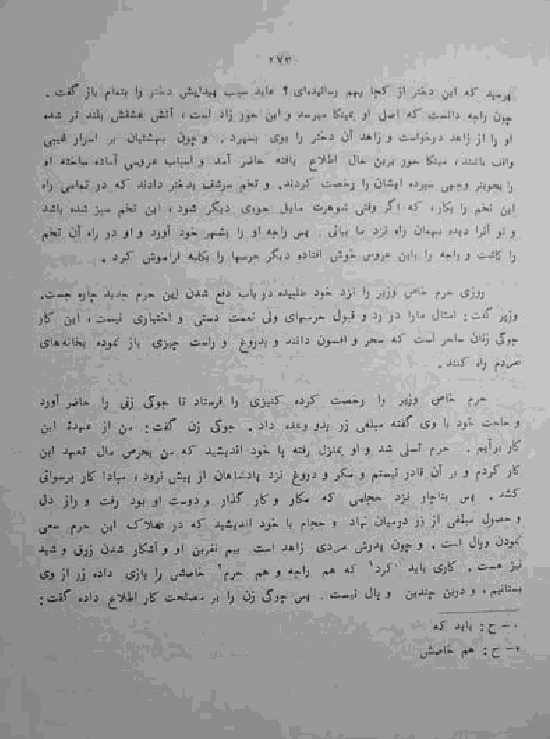 ۲۷۳
پرسید که این دختر از کجا بهم رسانیده‌ای؟ عابد سبب پیدایش دختر را بتمام باز گفت.
چون راجه دانست که اصل او بمینکا میرسد و این حور زاد است، آتش عشقش بلند تر شده
او را از زاهد درخواست و زاهد آن دختر را بوی سپرد. و چون بهشتیان بر اسرار غیبی
واقف باشند، مینکا حور برین حال اطلاع یافته حاضر آمد و اسباب عروسی آماده ساخته او
را بخوبتر وجهی سپرده ایشان را رخصت کردند. و تخم سرشف بدختر دادند که در تمامی راه
این تخم را بکار، که اگر وقتی شوهرت مایل حوری دیگر شود، این تخم سبز شده باشد
و تو آنرا دیده بهمان راه نزد ما بیائی. پس راجه او را بشهر خود آورد و او در راه آن تخم
را کاشت و راجه را باین عروس خوش افتاده دیگر حرمها را بکلیه فراموش کرد.
روزی حرم خاص وزیر را نزد خود طلبیده در باب دفع شدن این حرم جدید چاره جست.
وزیر گفت: امثال مارا در رد و قبول حرمهای ولی نعمت دستی و اختیاری نیست، این کار
جوگی زنان ساحر است که سحر و افسون دانند و بدروغ و راست چیزی باز نموده بخانه‌های
مردم راه کنند.
حرم خاص وزیر را رخصت کرده کنیزی را فرستاد تا جوگی زنی را حاضر آورد
و حاجت خود با وی گفته مبلغی زر بدو وعده داد. جوگی زن گفت: من از عهدۀ این
کار برآیم. حرم تسلی شد و او بمنزل رفته با خود اندیشید که من بحرص مال تعهد این
کار کردم و بر آن قادر نیستم و مکر و دروغ نزد پادشاهان از پیش نرود، مبادا کار برسوائی
کشد. پس بناچار نزد حجامی که مکار و کار گذار و دوست او بود رفت و راز دل
و حصول مبلغی از زر درمیان نهاد و حجام با خود اندیشید که در هلاک این حرم سعی
نمودن وبال است. و چون پدرش مردی زاهد است بیم نفرین او و آشکار شدن زرق و شید
نیز هست. کاری باید کرد۱ که هم راجه و هم حرم۲ خاصش را بازی داده زر از وی
بستانیم، و درین چندین وبال نیست. پس جوگی زن را بر مصلحت کار اطلاع داده گفت:
۱- ح: باید که
۲- ح: هم خاصش